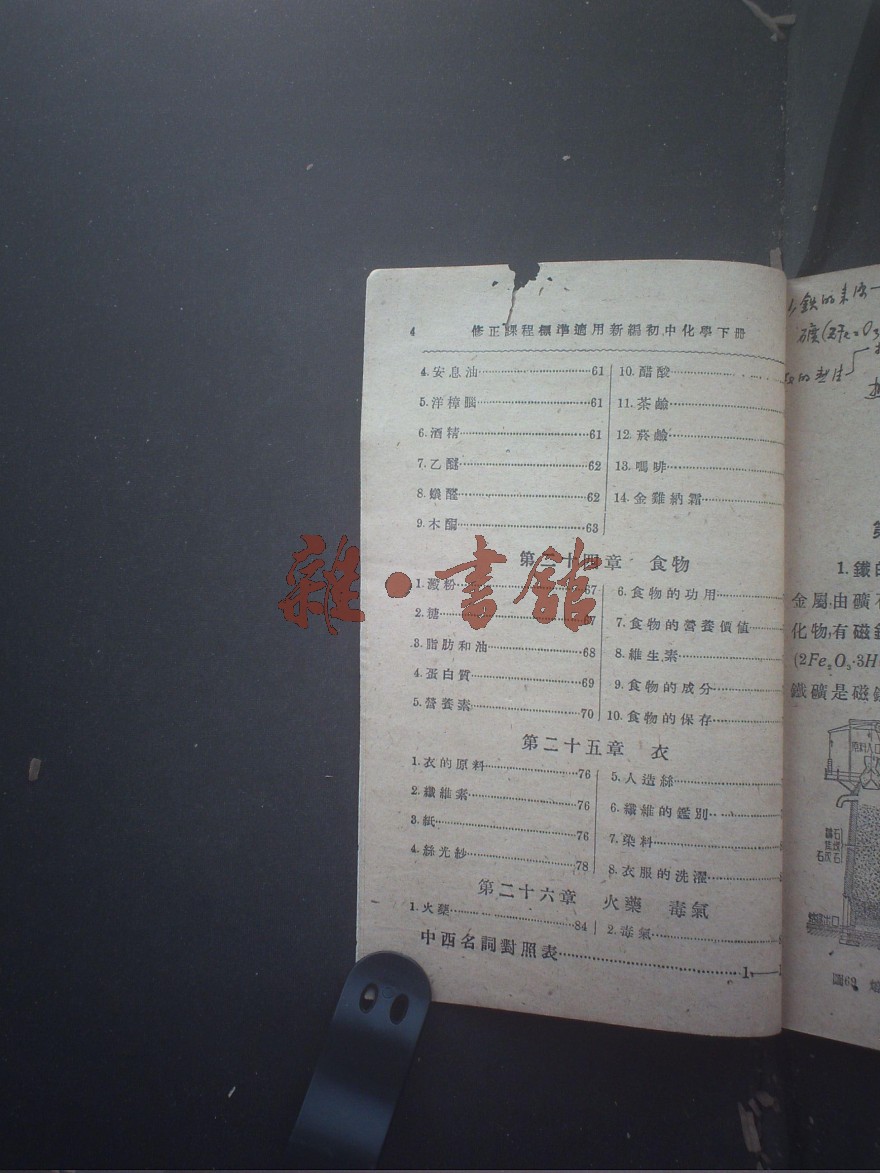 4 修正課程標準適用新編初中化學下冊
4.安息油……61
5.洋樟腦……61
6.酒精……61
7.乙醚……62
8.蟻醛……62
9.木酮……63
10.醋酸……
11.茶鹼……
12.菸鹼……
13.嗎啡……
14.金雞納霜……
第二十四章 食物
1.澱粉……67
2.糖……67
3.脂肪和油……68
4.蛋白質……69
5.營養素……70
6.食物的功用……
7.食物的營養價值……
8.維生素……
9.食物的成分……
10.食物的保存……
第二十五章 衣
1.衣的原料……76
2.纖維素……76
3.紙……76
4.絲光紗……78
5.人造絲……
6.纖維的鑑別……
7.染料……
8.衣服的洗濯……
第二十六章 火藥 毒氣
1.火藥……84
2.毒氣……
中西名詞對照表……1—
雜·書館
1.鐵的
金屬,由礦石
化物,有磁鐵
(2Fe₂O₃·3H
鐵礦是磁鐵
圖69